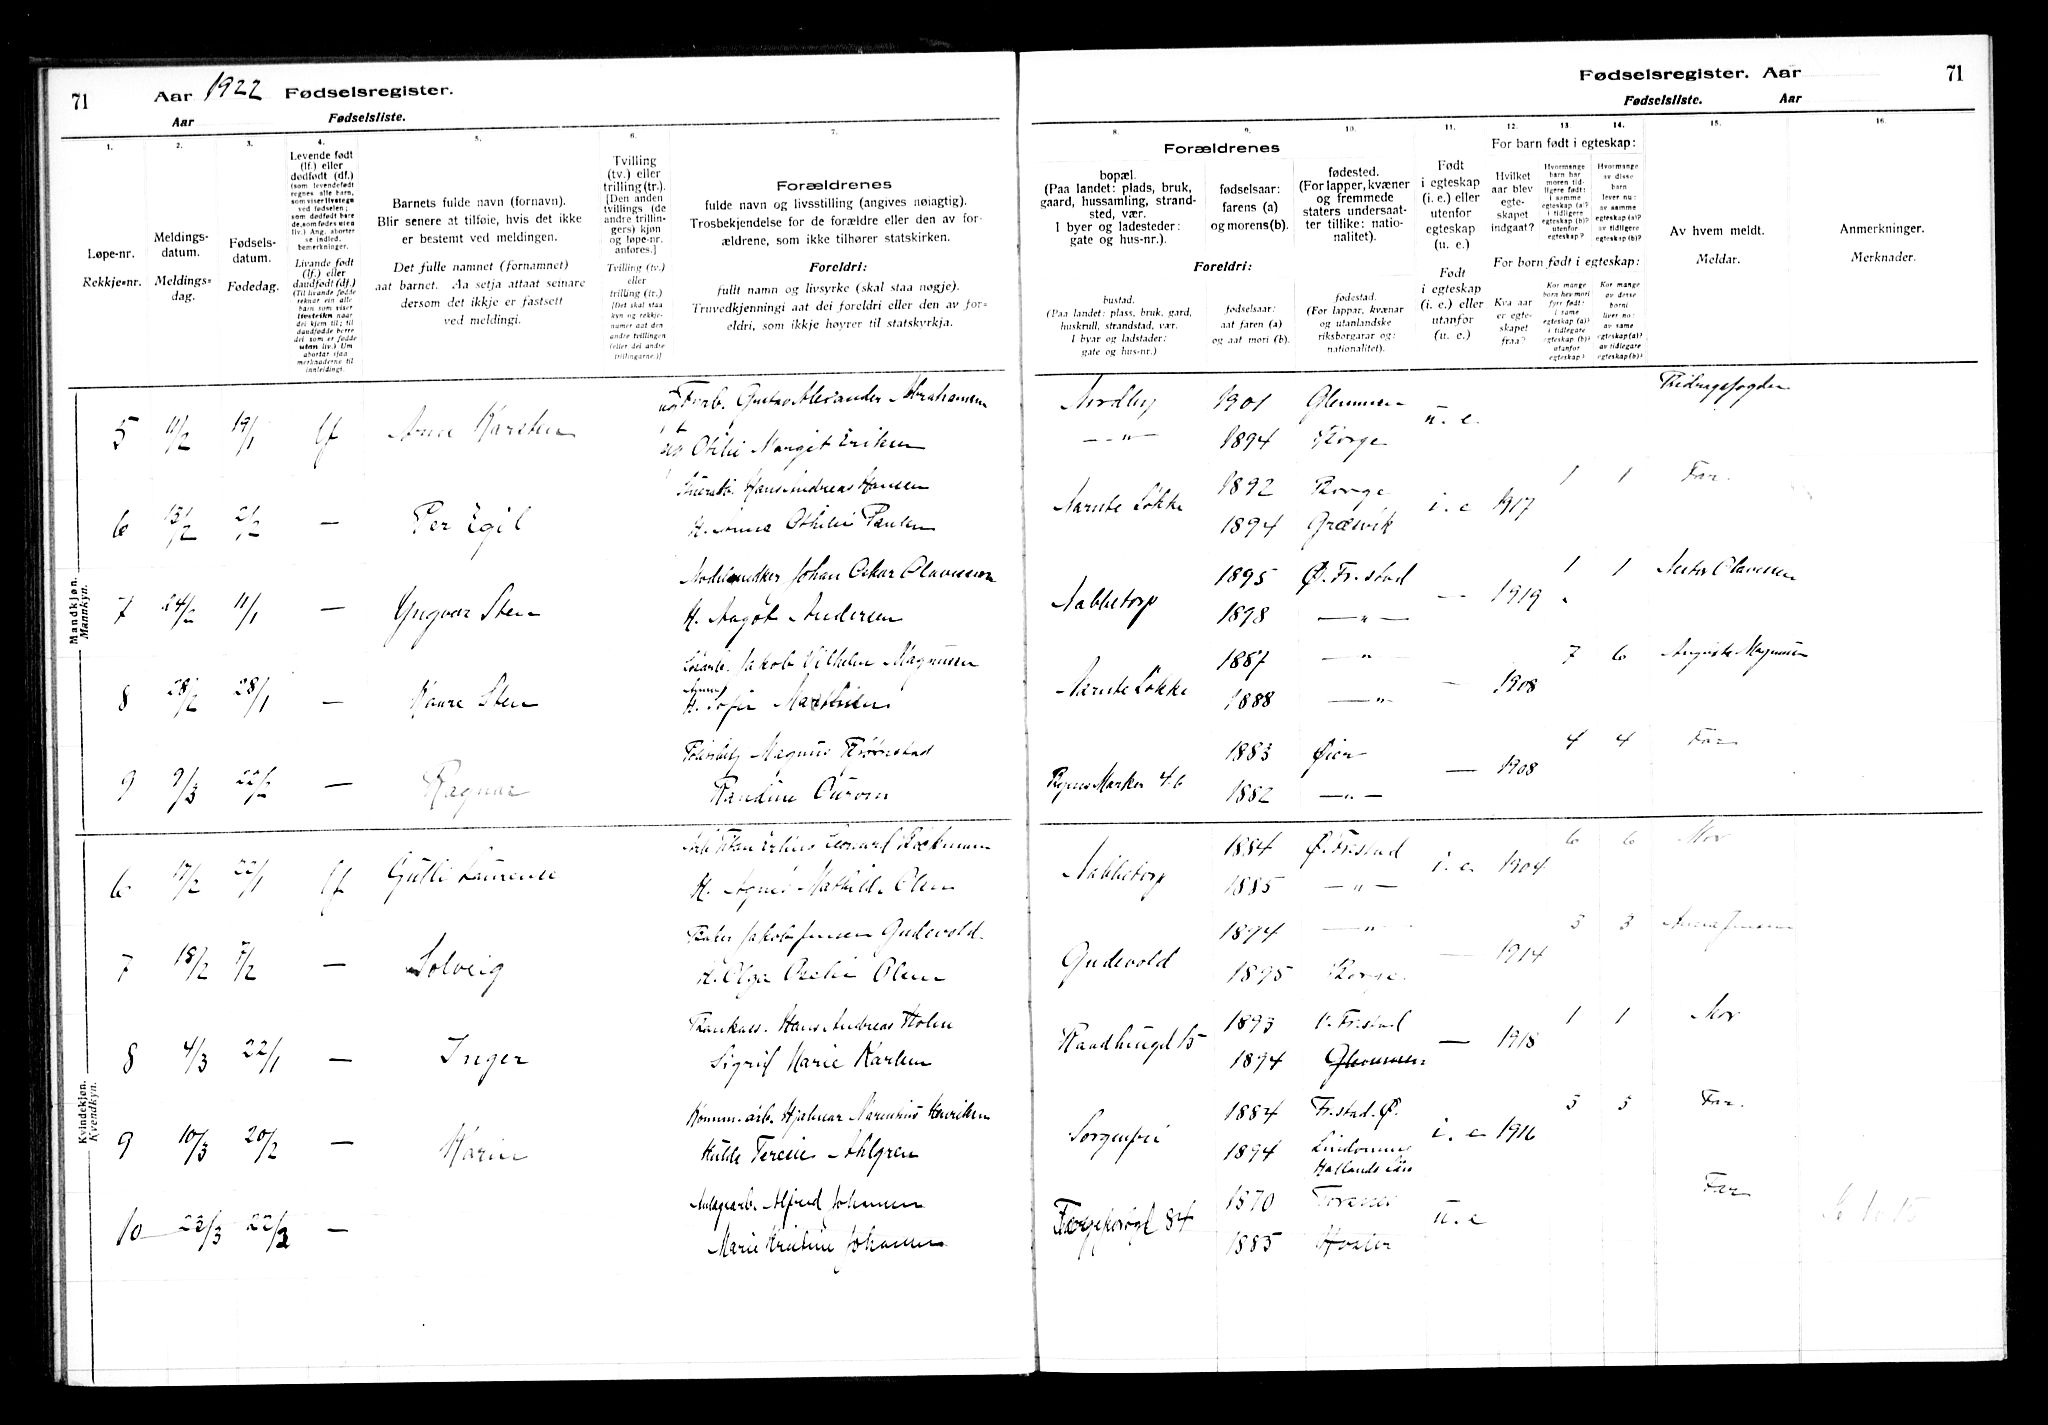 71 Aar 1922 Fødselsregister.
Aar Fødselsliste.
1. 2. 3. 4. 5. 6. 7.
Løpe-nr.
Rekkje-nr.
Meldings-
datum.
Meldings-
dag.
Fødsels-
datum.
Fødedag.
Levende født
(lf.) eller
dødfødt (df.)
(som levendefødt
regnes alle barn,
som viser livstegn
ved fødselen;
som dødfødt bare
de, som fødes uten
liv.) Ang. aborter
se indled.
bemerkninger.
Livande fødd
(lf.) eller
daudfødt (df.)
(Til livande fødde
reknar ein alle
barn som viser
livsteikn naar
dei kjem til; til
daudfødde berre
dei som er fødde
utan liv.) Um
abortar sjaa
merknaderne til
innleidingi.
Barnets fulde navn (fornavn).
Blir senere at tilføie, hvis det ikke
er bestemt ved meldingen.
Det fulle namnet (fornamnet)
aat barnet. Aa setja attaat seinare
dersom det ikkje er fastsett
ved meldingi.
Tvilling
(tv.) eller
trilling (tr.).
[Den anden
tvillings (de
andre trillin-
gers) kjøn
og løpe-nr.
anføres.]
Tvilling (tv.)
eller
trilling (tr.)
[Det skal staa
kyn og rekkje-
numer aat den
andre tvillingen
(eller dei andre
trillingarne.)]
Forældrenes
fulde navn og livsstilling (angives nøiagtig).
Trosbekjendelse for de forældre eller den av for-
ældrene, som ikke tilhører statskirken.
Foreldri:
fullt namn og livsyrke (skal staa nøgje).
Truvedkjenningi aat dei foreldri eller den av for-
eldri, som ikkje høyrer til statskyrkja.
Fødselsregister. Aar 71
Fødselsliste. Aar
8. 9. 10. 11. 12. 13. 14. 15. 16.
Forældrenes
bopæl.
(Paa landet: plads, bruk,
gaard, hussamling, strand-
sted, vær.
I byer og ladesteder:
gate og hus-nr.).
fødselsaar:
farens (a)
og morens (b).
fødested.
(For lapper, kvæner
og fremmede
staters undersaat-
ter tillike: natio-
nalitet).
Foreldri:
bustad.
(Paa landet: plass, bruk, gard,
huskrull, strandstad, vær.
I byar og ladstader:
gate og hus-nr.)
fødselsaar:
aat faren (a)
og aat mori (b).
fødestad.
(For lappar, kvænar
og utanlandske
riksborgarar og:
nationalitet).
Født
i egteskap
(i. e.) eller
utenfor
egteskap
(u. e.)
Født
i egteskap
(i. e.) eller
utanfor
(u. e.)
For barn født i egteskap:
Hvilket
aar blev
egte-
skapet
indgaat?
Hvormange
barn har
moren tid-
ligere født:
i samme
egteskap (a)?
i tidligere
egteskap (b)?
utenfor
egteskap?
Hvormange
av disse
barn
lever nu:
av samme
egteskap (a)?
av tidligere
egteskap (b)?
For born født i egteskap:
Kva aar
er egte-
skapet
fraa?
Kor mange
born hev mori
fyrr født:
i same
egteskap (a)?
i tidlegare
egteskap (b)?
utanfor
egteskap?
Kor mange
av desse
borni
liver no:
av same
egteskap (a)?
av tidlegare
egteskap (b)?
Av hvem meldt.
Meldar.
Anmerkninger.
Merknader.
Mandkjøn.
Mannkyn.
5 11/2 19/1 lf Arne Karsten Gustav Alexander Abrahamsen
Otilie Margit Eriksen
Nordby 1901 Glemmen u. e.
— „ — 1894 Borge
6 13/2 2/2 — Per Egil Hans Andreas Hansen
H. Anna Othilie Paulsen
Aarste Løkke 1892 Borge i. e 1917 1 1 Far.
1894 Græsvik
7 24/2 11/1 — Yngvar Sten Johan Oskar Olavesson
H. Aagot Andersen
Nabbetorp 1895 Ø. Fr.stad — 1919 1 1 Olavesen
1898 — „ —
8 28/2 28/1 — Kaare Sten Jakob Vilhelm Magnussen
H. Sofie
Aarste Løkke 1887 — „ — 1908 7 6 Magnussen
1888 — „ —
9 9/3 22/2 — Ragnar Magnus
Randine
1883 Øier — 1908 4 4 Far
1882 — „ —
Kvindekjøn.
Kvendkyn.
6 17/2 22/1 lf Gulli Laurense
H. Agnes Mathilde Olsen
Nabbetorp 1884 Ø. Fr.stad i. e 1904 6 6 Mor
1885 — „ —
7 18/2 7/2 — Solveig Jakob Jensen Gudevold.
H. Olga Olsen
Gudevold 1894 — „ — 1914 3 3 Jensen
1895 Borge.
8 4/3 22/1 — Inger Hans Andreas Holm
Sigrid Marie Karlsen
15 1893 Fr.stad — 1918 1 1 Mor
1894 Glemmen
9 10/3 20/2 — Karin Komm.arb. Hjalmar Henriksen
Hulda Terese Ahlgren
Sorgenfri 1884 Fr.stad. Ø. i. e 1916 5 5 Far.
1894 Lindome
Hallands län
10 23/3 22/3 — Alfred Johansen
Marie Kristine Johansen
84 1870 u. e Far
1885 Hvaler